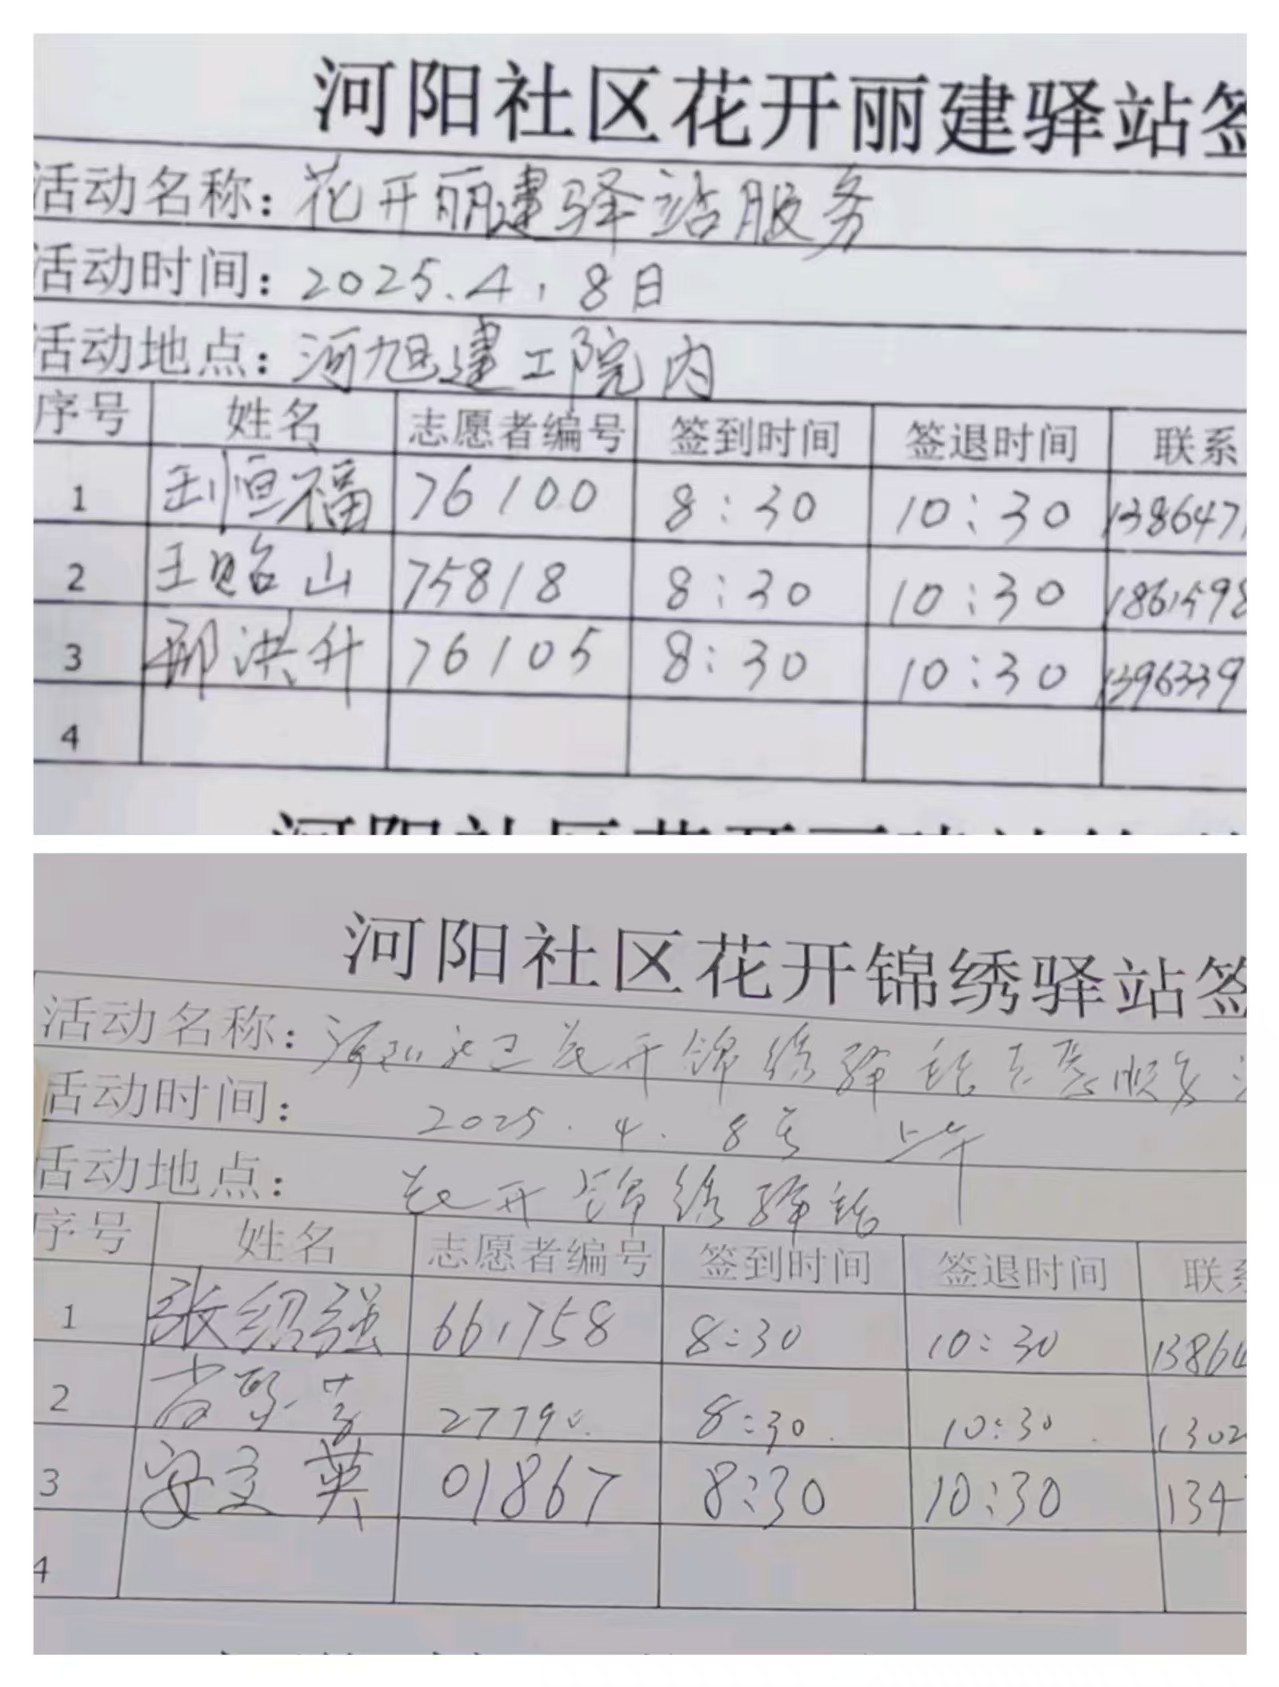 河阳社区花开丽建驿站签
活动名称：花开丽建驿站服务
活动时间：2025.4.8日
活动地点：河旭建工院内
序号 姓名 志愿者编号 签到时间 签退时间 联系
1 王恒福 76100 8:30 10:30 1386471
2 王贻山 75818 8:30 10:30 1861598
3 邢洪升 76105 8:30 10:30 1396339
4
河阳社区花开锦绣驿站签
活动名称：河阳社区花开锦绣驿站志愿服务
活动时间：2025.4.8号 上午
活动地点：花开锦绣驿站
序号 姓名 志愿者编号 签到时间 签退时间 联系
1 张绍强 661758 8:30 10:30 13864
2 8:30 10:30 1302
3 安立英 01867 8:30 10:30 134
4